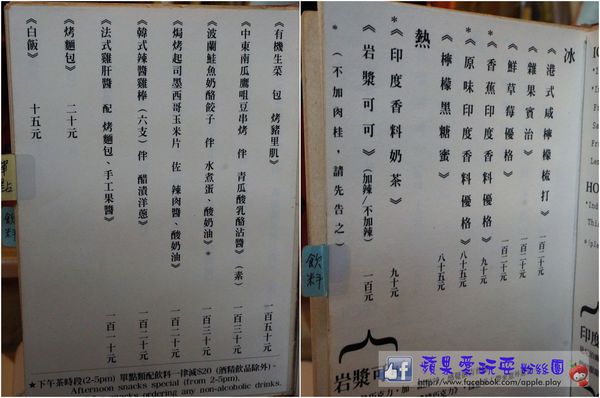 《有機生菜 包 烤豬里肌》 一百五十元
《中東南瓜鷹咀豆串烤 伴 青瓜酸乳酪沾醬》(素) 一百三十元
《波蘭鮭魚奶酪餃子 伴 水煮蛋、酸奶油》* 一百三十元
《焗烤起司墨西哥玉米片 佐 辣肉醬、酸奶油》 一百二十元
《韓式辣醬雞棒(六支) 伴 醋漬洋蔥》 一百二十元
《法式雞肝醬 配 烤麵包、手工果醬》 一百一十元
《烤麵包》 二十元
《白飯》 十五元
★下午茶時段(2-5pm) 單點類配飲料一律減$20 (酒精飲品除外)。
Afternoon snacks special (from 2-5pm),
snacks ordering any non-alcoholic drinks.
單
點
飲
料
冰
《港式咸檸檬梳打》 一百二十元
《雜果賓治》 一百二十元
《鮮草莓優格》 一百二十元
*《香蕉印度香料優格》 九十元
*《原味印度香料優格》 八十五元
《檸檬黑糖蜜》 八十五元
熱
*《印度香料奶茶》 九十元
《岩漿可可》(加辣/不加辣) 一百元
*(不加肉桂,請先告之)
飲
料
岩漿可
印度
HO
蘋果愛玩耍 粉絲團
http://www.facebook.com/apple.play